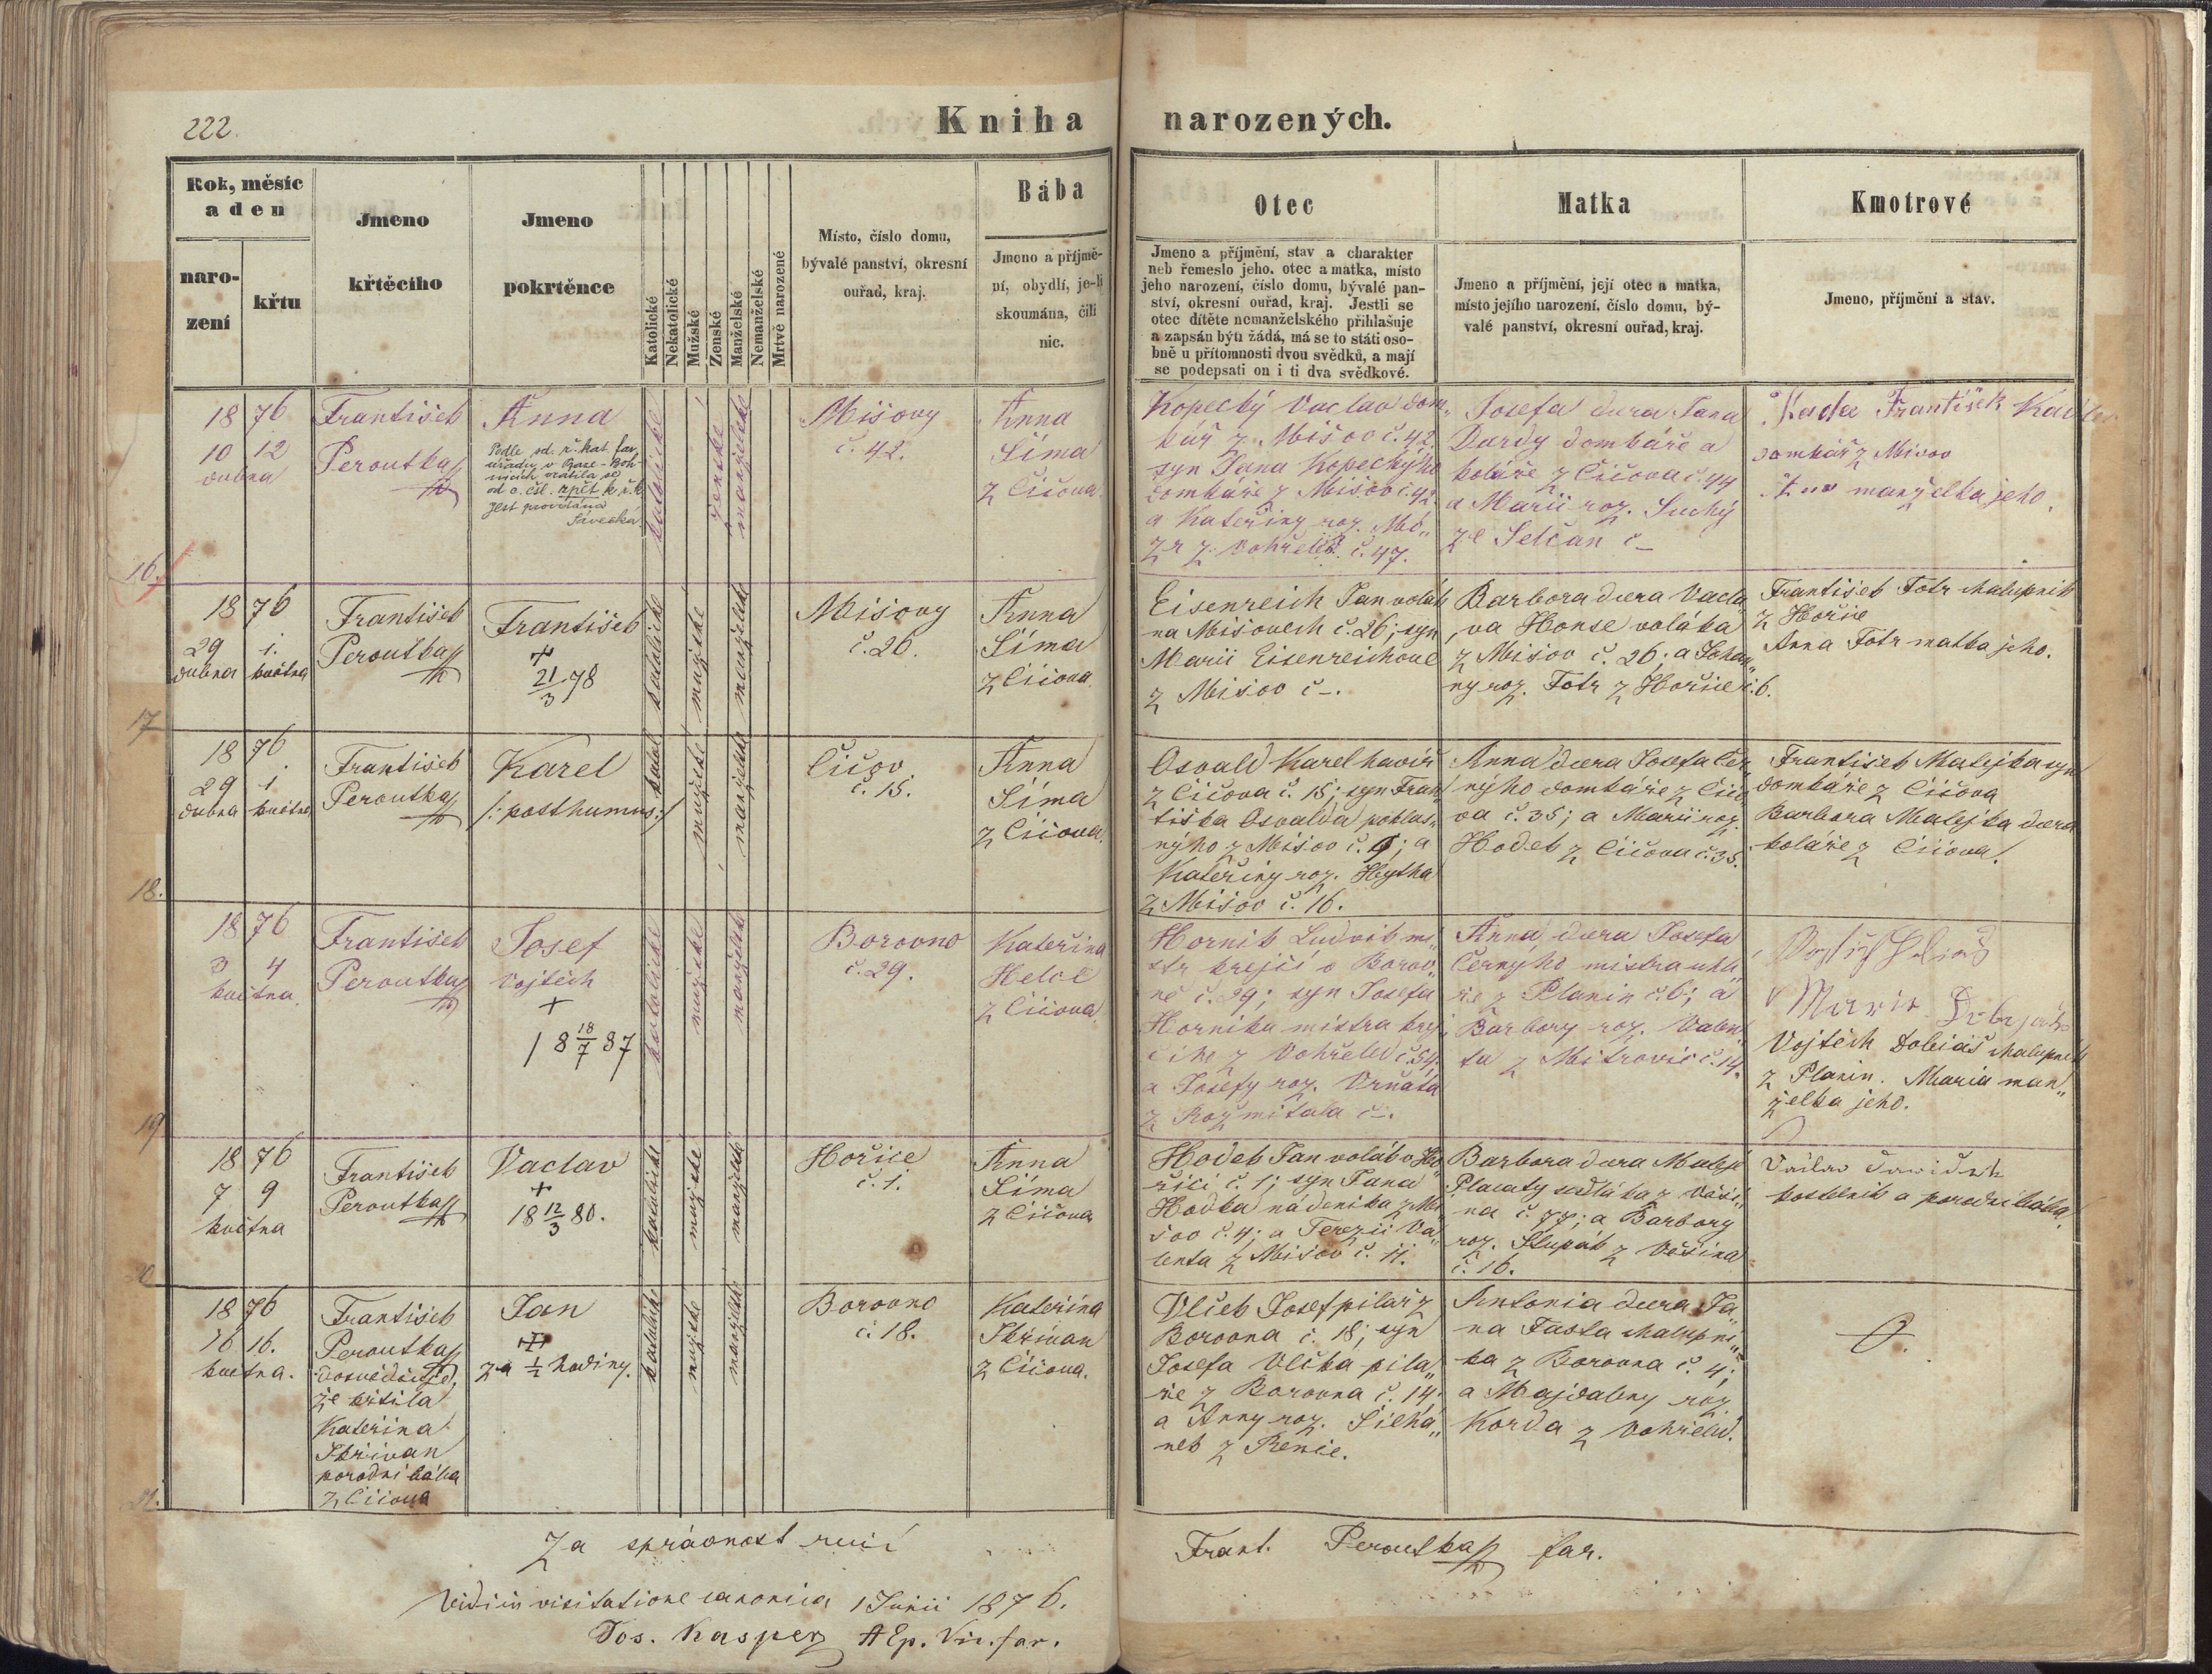 222.
Kniha narozených.
Rok, měsíc
a den
naro-
zení
křtu
Jmeno
křtěcího
Jmeno
pokrtěnce
Katolické
Nekatolické
Mužské
Ženské
Manželské
Nemanželské
Mrtvě narozené
Místo, číslo domu,
bývalé panství, okresní
ouřad, kraj.
Bába
Jmeno a příjmě-
ní, obydlí, je-li
skoumána, čili
nic.
Otec
Jmeno a příjmění, stav a charakter
neb řemeslo jeho, otec a matka, místo
jeho narození, číslo domu, bývalé pan-
ství, okresní ouřad, kraj. Jestli se
otec dítěte nemanželského přihlašuje
a zapsán býti žádá, má se to státi oso-
bně u přítomnosti dvou svědků, a mají
se podepsati on i ti dva svědkové.
Matka
Jmeno a příjmění, její otec a matka,
místo jejího narození, číslo domu, bý-
valé panství, okresní ouřad, kraj.
Kmotrové
Jmeno, příjmění a stav.
16.
1876
10 12
dubna
František
Peroutka
Anna
Podle sd. ř. kat. far.
úřadu v
vrátila se
od c. čsl. zpět k ř. k.
jest provdána
katolické
ženské
manželské
Mišovy
č. 42.
Anna
Šíma
z Čičova
Kopecký Vaclav dom„
kář z Mišov č. 42.
syn Jana Kopeckýho
domkáře z Mišov č. 42.
a Kateřiny roz.
z Vohřeled č. 47.
Josefa dcera Jana
Dardy domkáře a
koláře z Čičova č. 44
a Marii roz. Suchý
ze Selčan č –
František
domkář z Mišov
manželka jeho.
17
1876
29 1.
dubna května
František
Peroutka
František
+
21/3 78
katolické
mužské
manželské
Mišovy
č. 26.
Anna
Šíma
z Čičova
Eisenreich Jan voták
na Mišovech č. 26; syn
Marii Eisenreichove
z Mišov č –.
Barbora dcera Vacla„
va Honse voláka
z Mišov č. 26; a Johan„
ny roz. Fotr z Hořic č. 6.
František Fotr chalupnik
z Hořic
Anna Fotr matka jeho.
18.
1876
29 1
dubna května
František
Peroutka
Karel
/: posthumus :/
katol
mužské
manželské
Čičov
č. 15.
Anna
Šíma
z Čičova.
Osvald Karel havíř
z Čičova č. 15; syn Fran„
tiška Osvalda poklas„
nýho z Mišov č. 9; a
Kateřiny roz. Hytha
z Mišov č. 16.
Anna dcera Josefa Čer„
nýho domkáře z Čičo„
va č. 35; a Marii roz.
Hodek z Čičova č. 35.
František Matejka syn
domkáře z Čičova
Barbora Matejka dcera
koláře z Čičova.
19
1876
3 4
května
František
Peroutka
Josef
Vojtěch
+
18 18/7 87
katolické
mužské
manželské
Borovno
č. 29.
Kateřina
Helcl
z Čičova
Hornik Ludvik mi„
str krejčí v Borov„
ně č. 29; syn Josefa
Hornika mistra krej„
čího z Vohřeled č. 54
a Josefy roz. Vrňata
z Rožmitala č –.
Anna, dcera Josefa
Černyho mistra uhlí„
ře z Planin č. 6; a
Barbory roz. Valen„
ta z Mitrovic č. 14.
Marie
Vojtěch Dobiáš chalupnik
z Planin. Maria man„
želka jeho.
1876
7 9
května
František
Peroutka
Vaclav
+
18 12/3 80.
katolické
mužské
manželské
Hořice
č. 1.
Anna
Šíma
z Čičova
Hodek Jan voták v Ho„
řici č. 1; syn Jana
Hodka nádenika z Mi„
šov č. 4; a Terezii Va„
lenta z Mišov č. 11.
Barbora dcera Mateje
Placaty sedláka z Věší„
na č. 77; a Barbory
roz. Stupák z Věšína
č. 16.
Václav
kostelnik a porodní bába.
21.
1876
16 16.
května.
František
Peroutka
dosvědčuje,
že křtila
Kateřina
Skřivan
porodní bába
z Čičova
Jan
+
za ½ hodiny.
katolické
mužské
manželské
Borovno
č. 18.
Kateřina
Skřivan
z Čičova.
Vlček Josef pilař z
Borovna č. 18; syn
Josefa Vlčka pila„
ře z Borovna č. 14
a Anny roz. Šilhá„
nek z Renic.
Antonia dcera Ja„
na Fasta chalupni„
ka z Borovna č. 4;
a Majdaleny roz.
Korda z Vohřeled.
Za správnost ručí
Frant. Peroutka far.
Vidi in visitatione canonica 1 Junii 1876.
Jos. Kasper AEp. Vic. far.